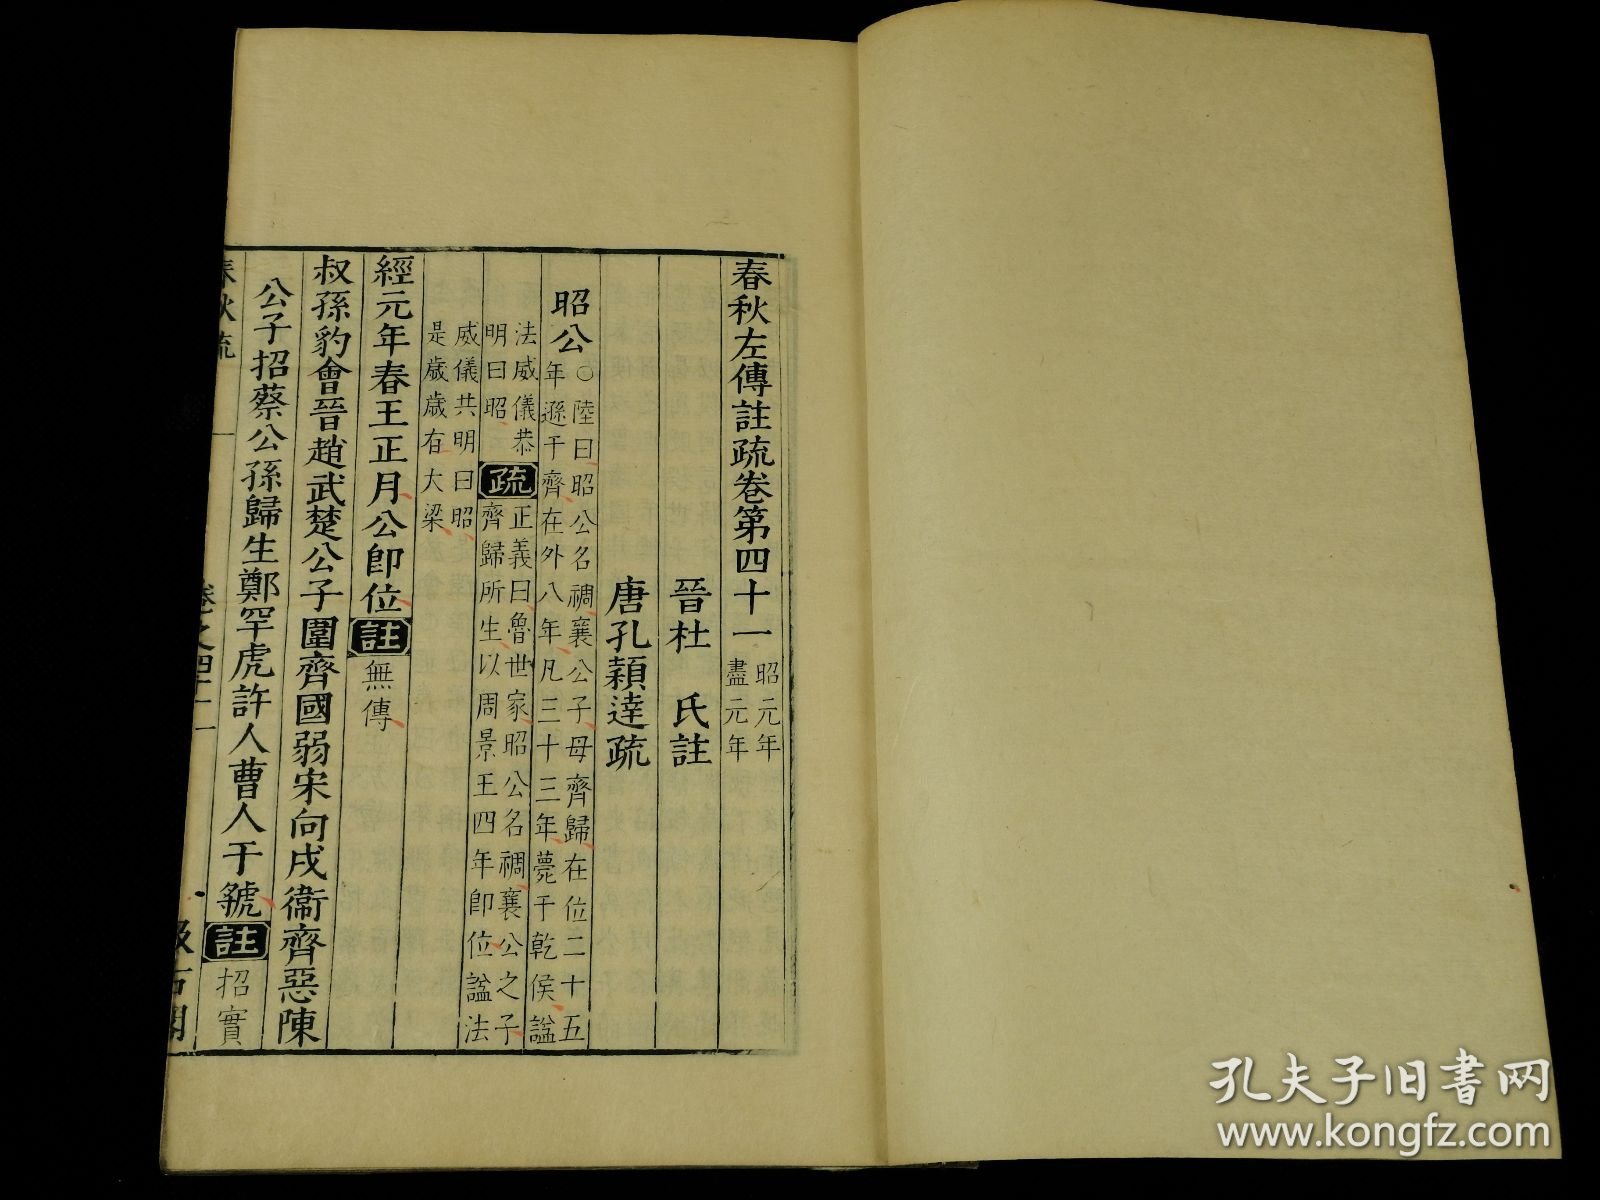 春秋左傳註疏卷第四十一
昭元年
盡元年
晉杜 氏註
唐孔穎達疏
昭公
○陸曰昭公名裯襄公子母齊歸在位二十五
年遜于齊在外八年凡三十三年薨于乾侯諡
法威儀恭
明曰昭
疏
正義曰魯世家昭公名裯襄公之子
齊歸所生以周景王四年卽位諡法
威儀共明曰昭
是歲歲有大梁
經元年春王正月公卽位
註
無傳
叔孫豹會晉趙武楚公子圍齊國弱宋向戌衞齊惡陳
公子招蔡公孫歸生鄭罕虎許人曹人于虢
註
招實
春秋疏
一
卷之四十一
汲古閣
孔夫子旧書网
www.kongfz.com